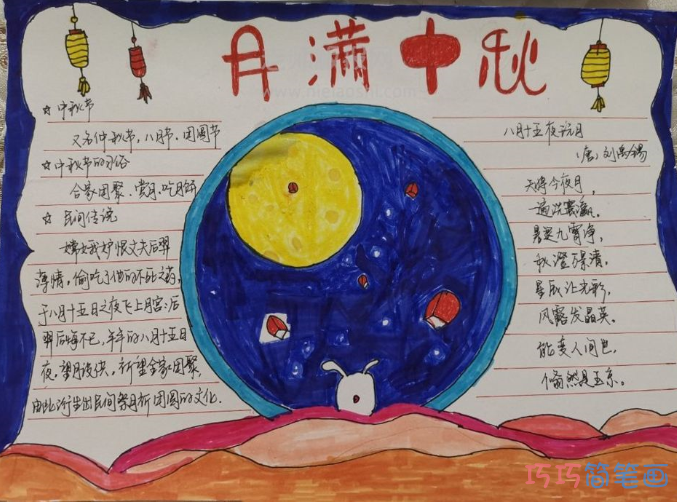 月满中秋
☆ 中秋节
又名仲秋节,八月节、团圆节
☆ 中秋节的习俗
合家团聚、赏月、吃月饼
☆ 民间传说
嫦娥妒恨丈夫后羿
薄情,偷吃了他的不死之药,
于八月十五日之夜飞上月宫;后
羿后悔不已,年年的八月十五日
夜,望月凌诀,祈望全家团聚,
由此衍生出民间祭月祈团圆的文化.
八月十五夜玩月
(唐)刘禹锡
天将今夜月,
一遍洗寰瀛。
暑退九霄净,
秋澄万景清。
星辰让光彩,
风露发晶英。
能变人间世,
翛然是玉京。
巧巧简笔画